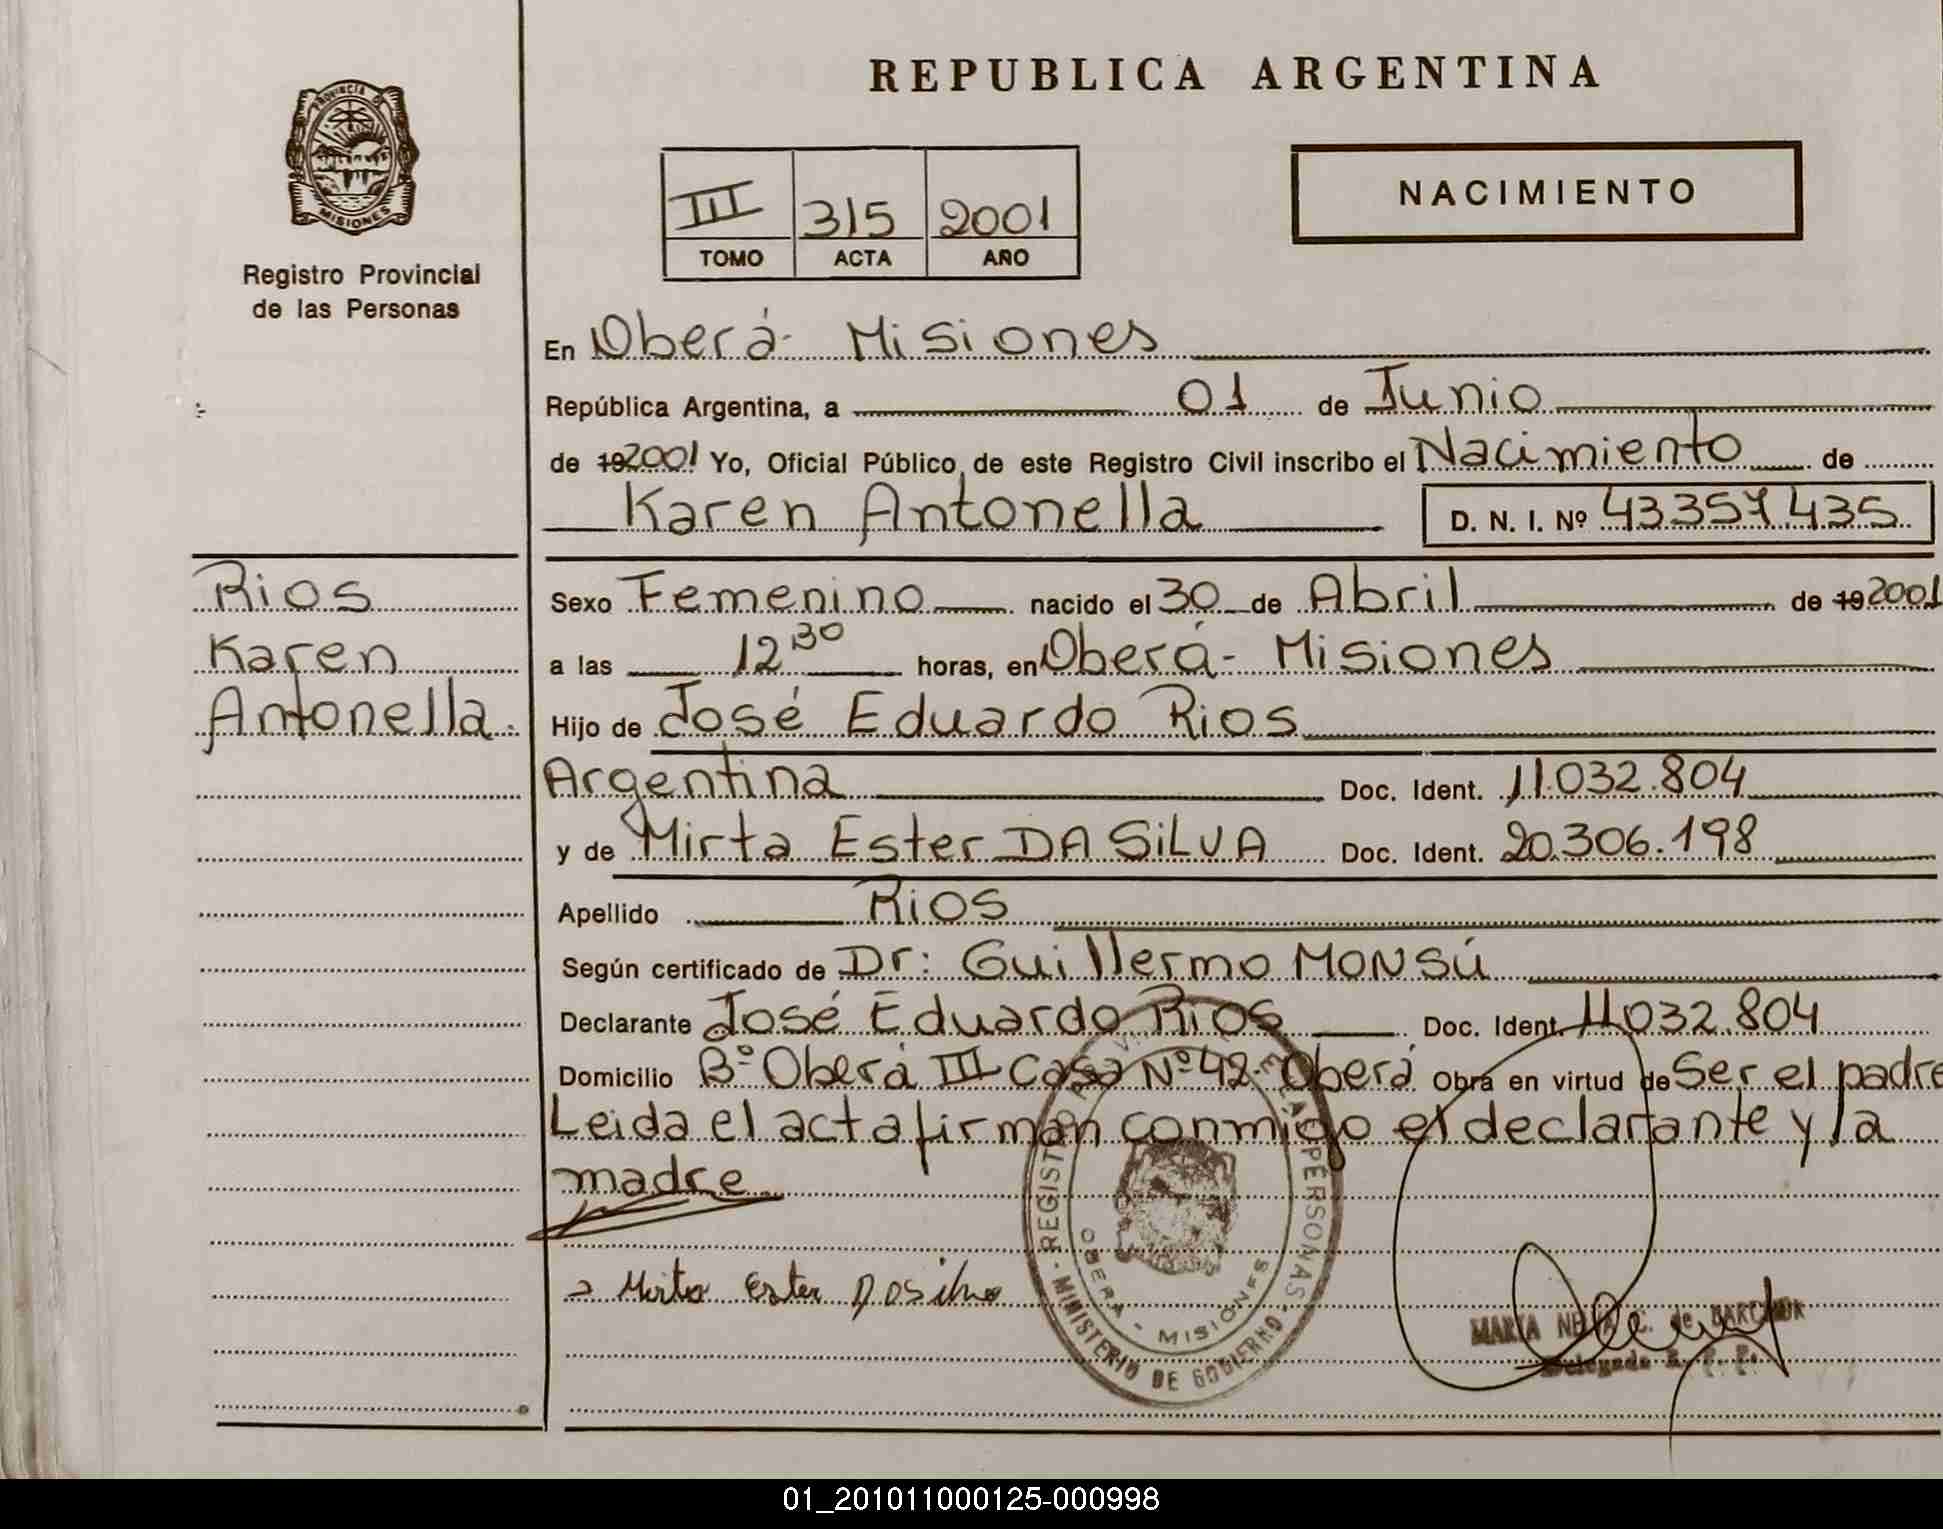 REPUBLICA ARGENTINA
PROVINCIA DE
MISIONES
Registro Provincial
de las Personas
III 315 2001
TOMO ACTA AÑO
NACIMIENTO
En Oberá - Misiones
República Argentina, a 01 de Junio
de 192001 Yo, Oficial Público, de este Registro Civil inscribo el Nacimiento de
Karen Antonella D. N. I. Nº 43357435
Rios
Karen
Antonella.
Sexo Femenino nacido el 30 de Abril de 19 2001
a las 12 30 horas, en Oberá - Misiones
Hijo de José Eduardo Rios
Argentina Doc. Ident. 11.032.804
y de Mirta Ester DA SiLVA Doc. Ident. 20.306.198
Apellido Rios
Según certificado de Dr: Guillermo MONSÚ
Declarante José Eduardo Rios Doc. Ident. 11032.804
Domicilio Bº Oberá III Casa Nº 42- Oberá Obra en virtud de Ser el padre
Leida el acta firman conmigo el declarante y la
madre
Mirta Ester Dasilva
REGISTRO PERSONAS - MINISTERIO DE GOBIERNO -
OBERA - MISIONES
MARIA C. de
Delegada R. P. P.
01_201011000125-000998